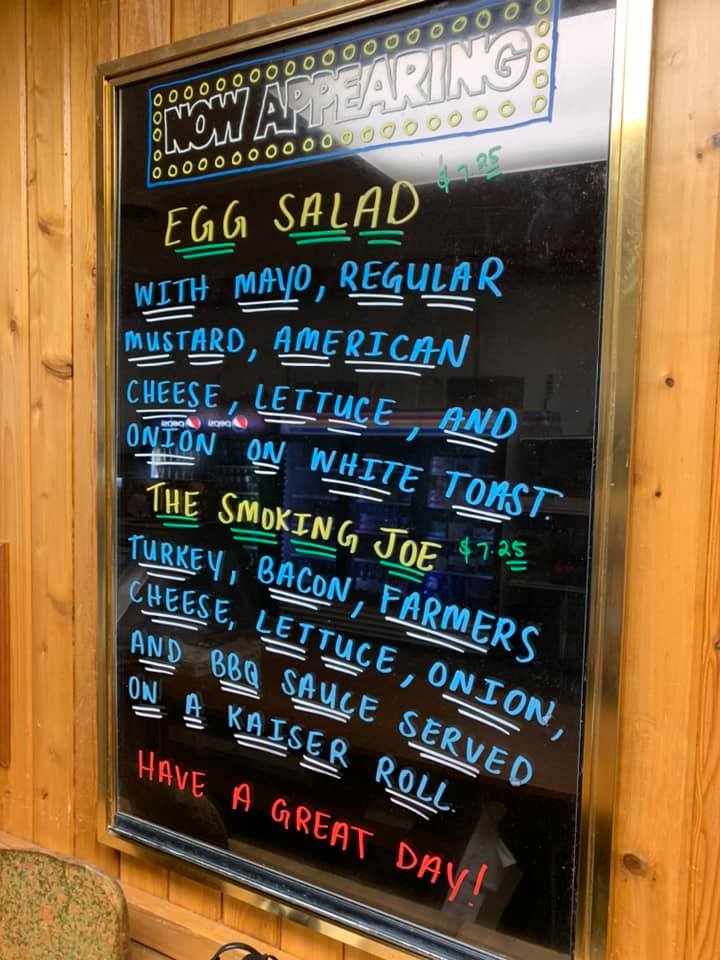 NOW APPEARING
$7.25
EGG SALAD
WITH MAYO, REGULAR
MUSTARD, AMERICAN
CHEESE, LETTUCE, AND
ONION ON WHITE TOAST.
THE SMOKING JOE $7.25
TURKEY, BACON, FARMERS
CHEESE, LETTUCE, ONION,
AND BBQ SAUCE SERVED
ON A KAISER ROLL.
HAVE A GREAT DAY!